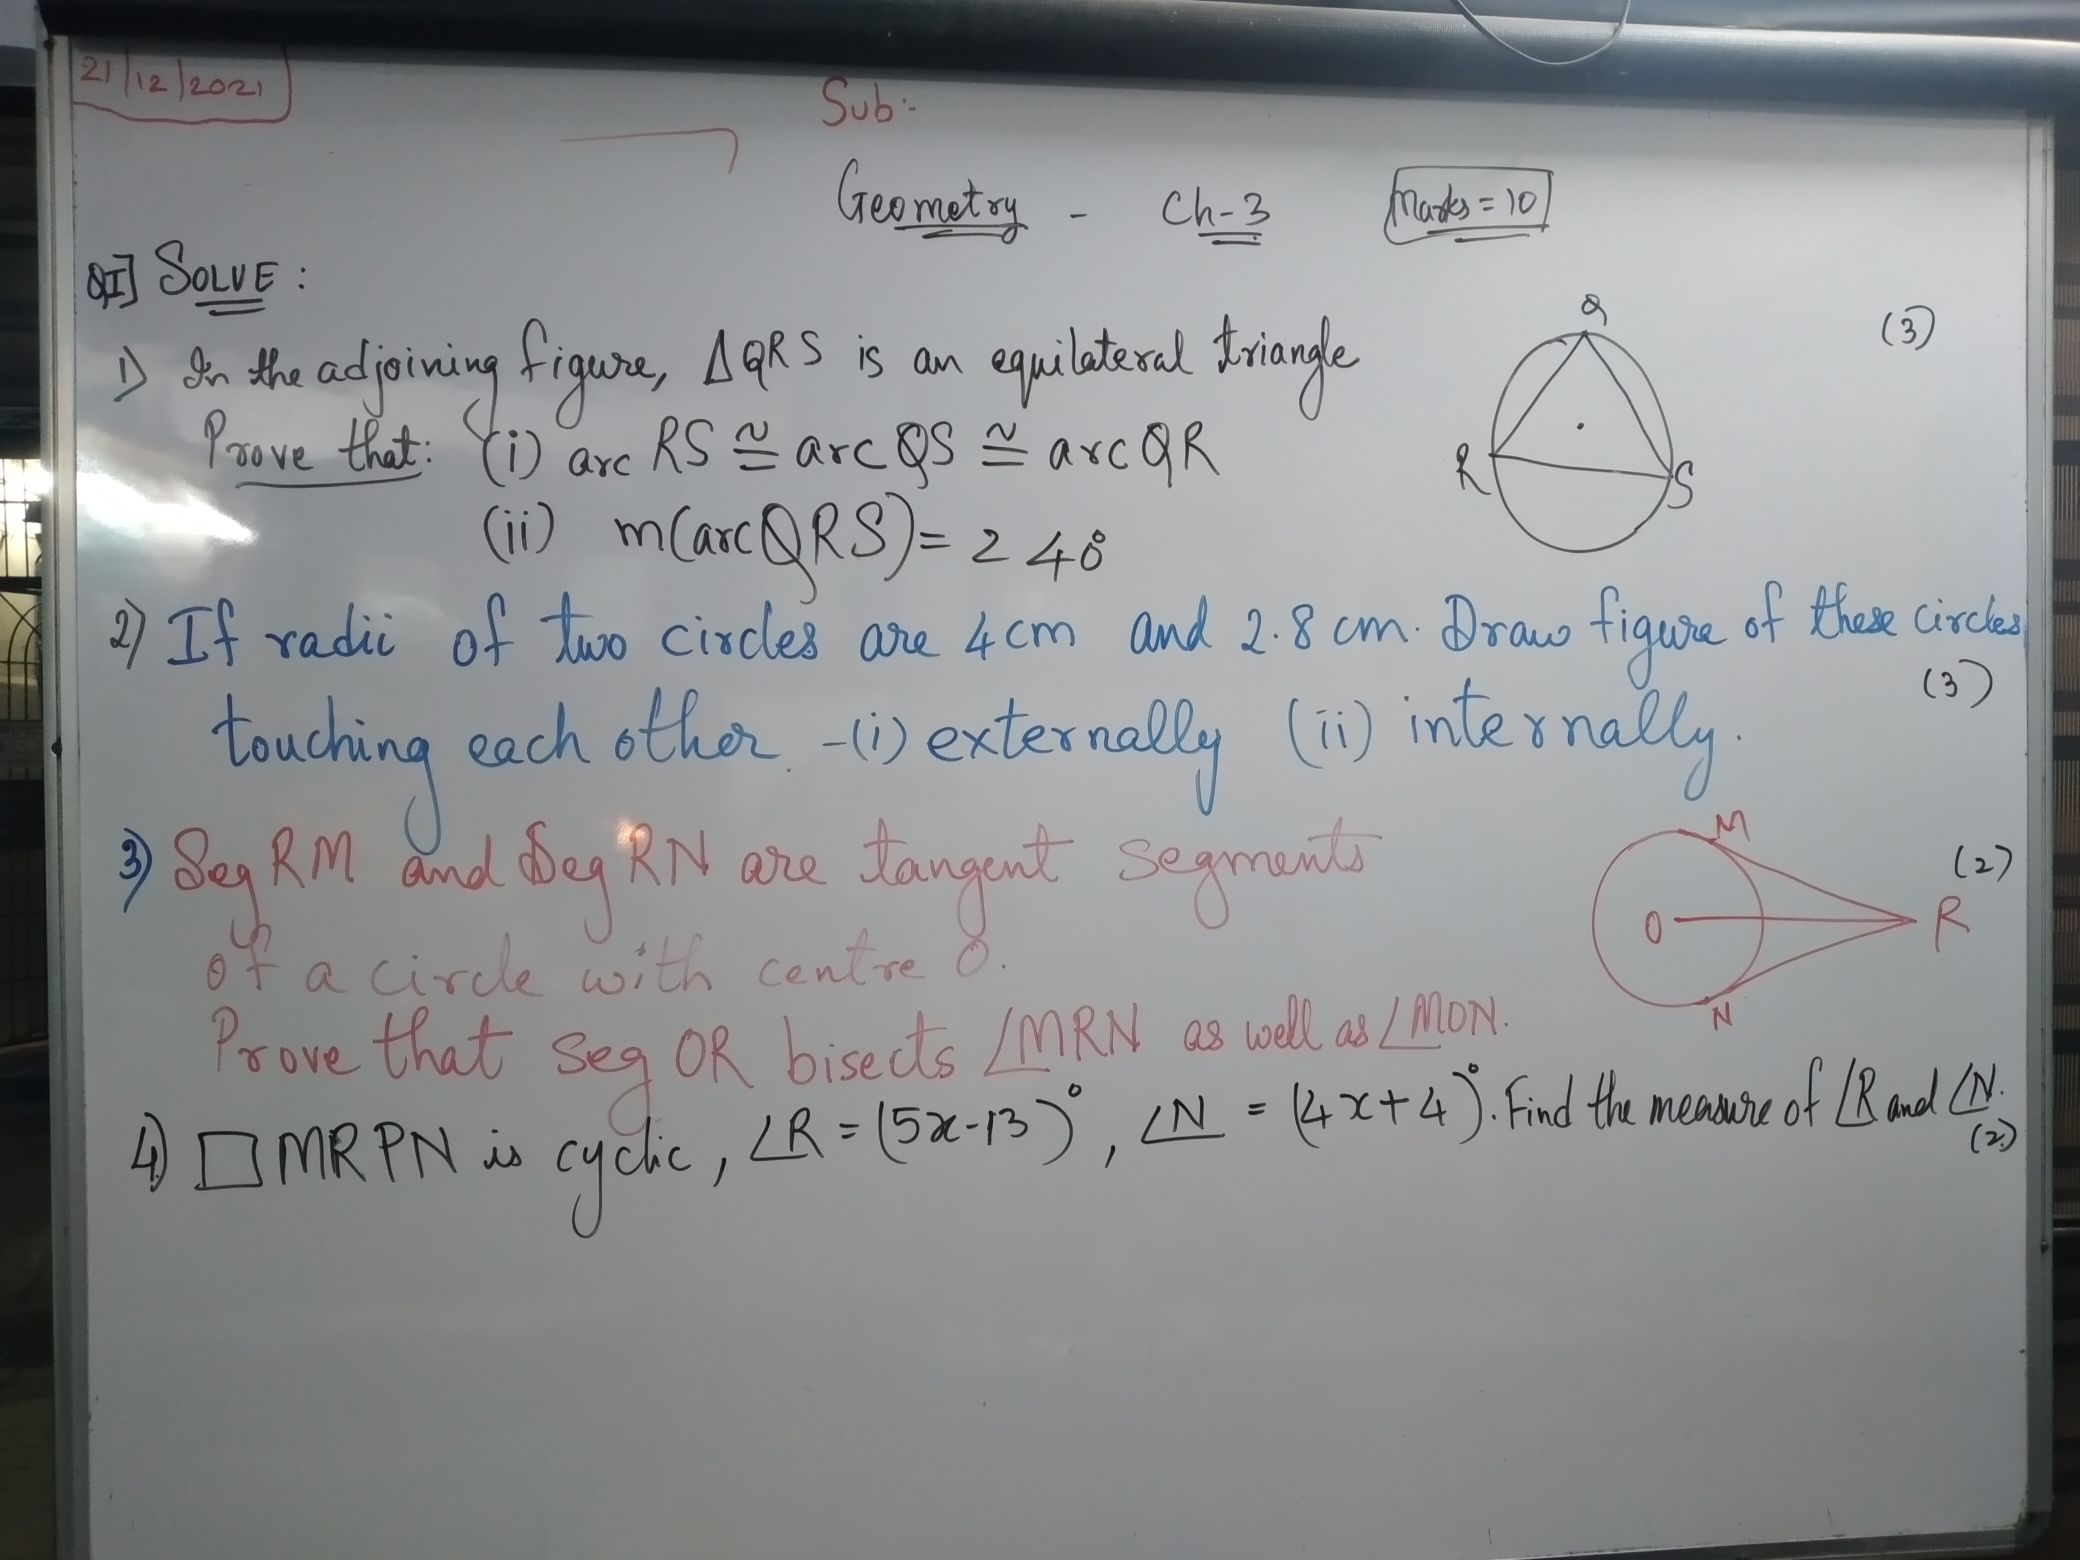 21/12/2021
Sub:-
Geometry - Ch-3 Marks = 10
QI] SOLVE :
1) In the adjoining figure, ΔQRS is an equilateral triangle (3)
Prove that: (i) arc RS ≅ arc QS ≅ arc QR
(ii) m(arc QRS) = 240°
Q
R
S
2) If radii of two circles are 4cm and 2.8 cm. Draw figure of these circles
touching each other -(i) externally (ii) internally. (3)
3) Seg RM and Seg RN are tangent segments (2)
of a circle with centre O.
Prove that seg OR bisects ∠MRN as well as ∠MON.
M
O
R
N
4) □MRPN is cyclic, ∠R = (5x-13)°, ∠N = (4x+4)°. Find the measure of ∠R and ∠N.
(2)